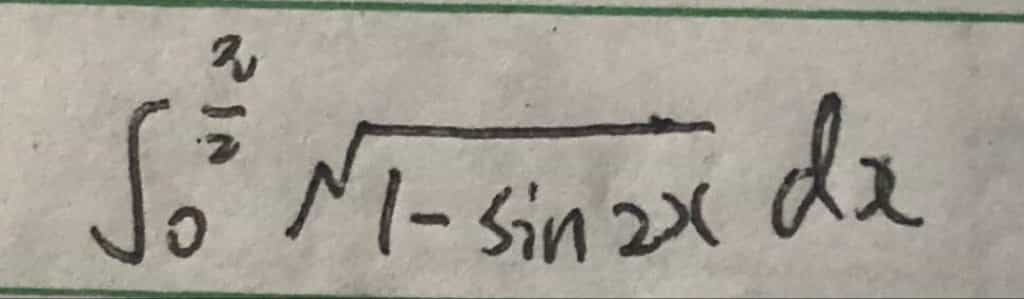 ∫₀^{π/2} √(1-sin2x) dx